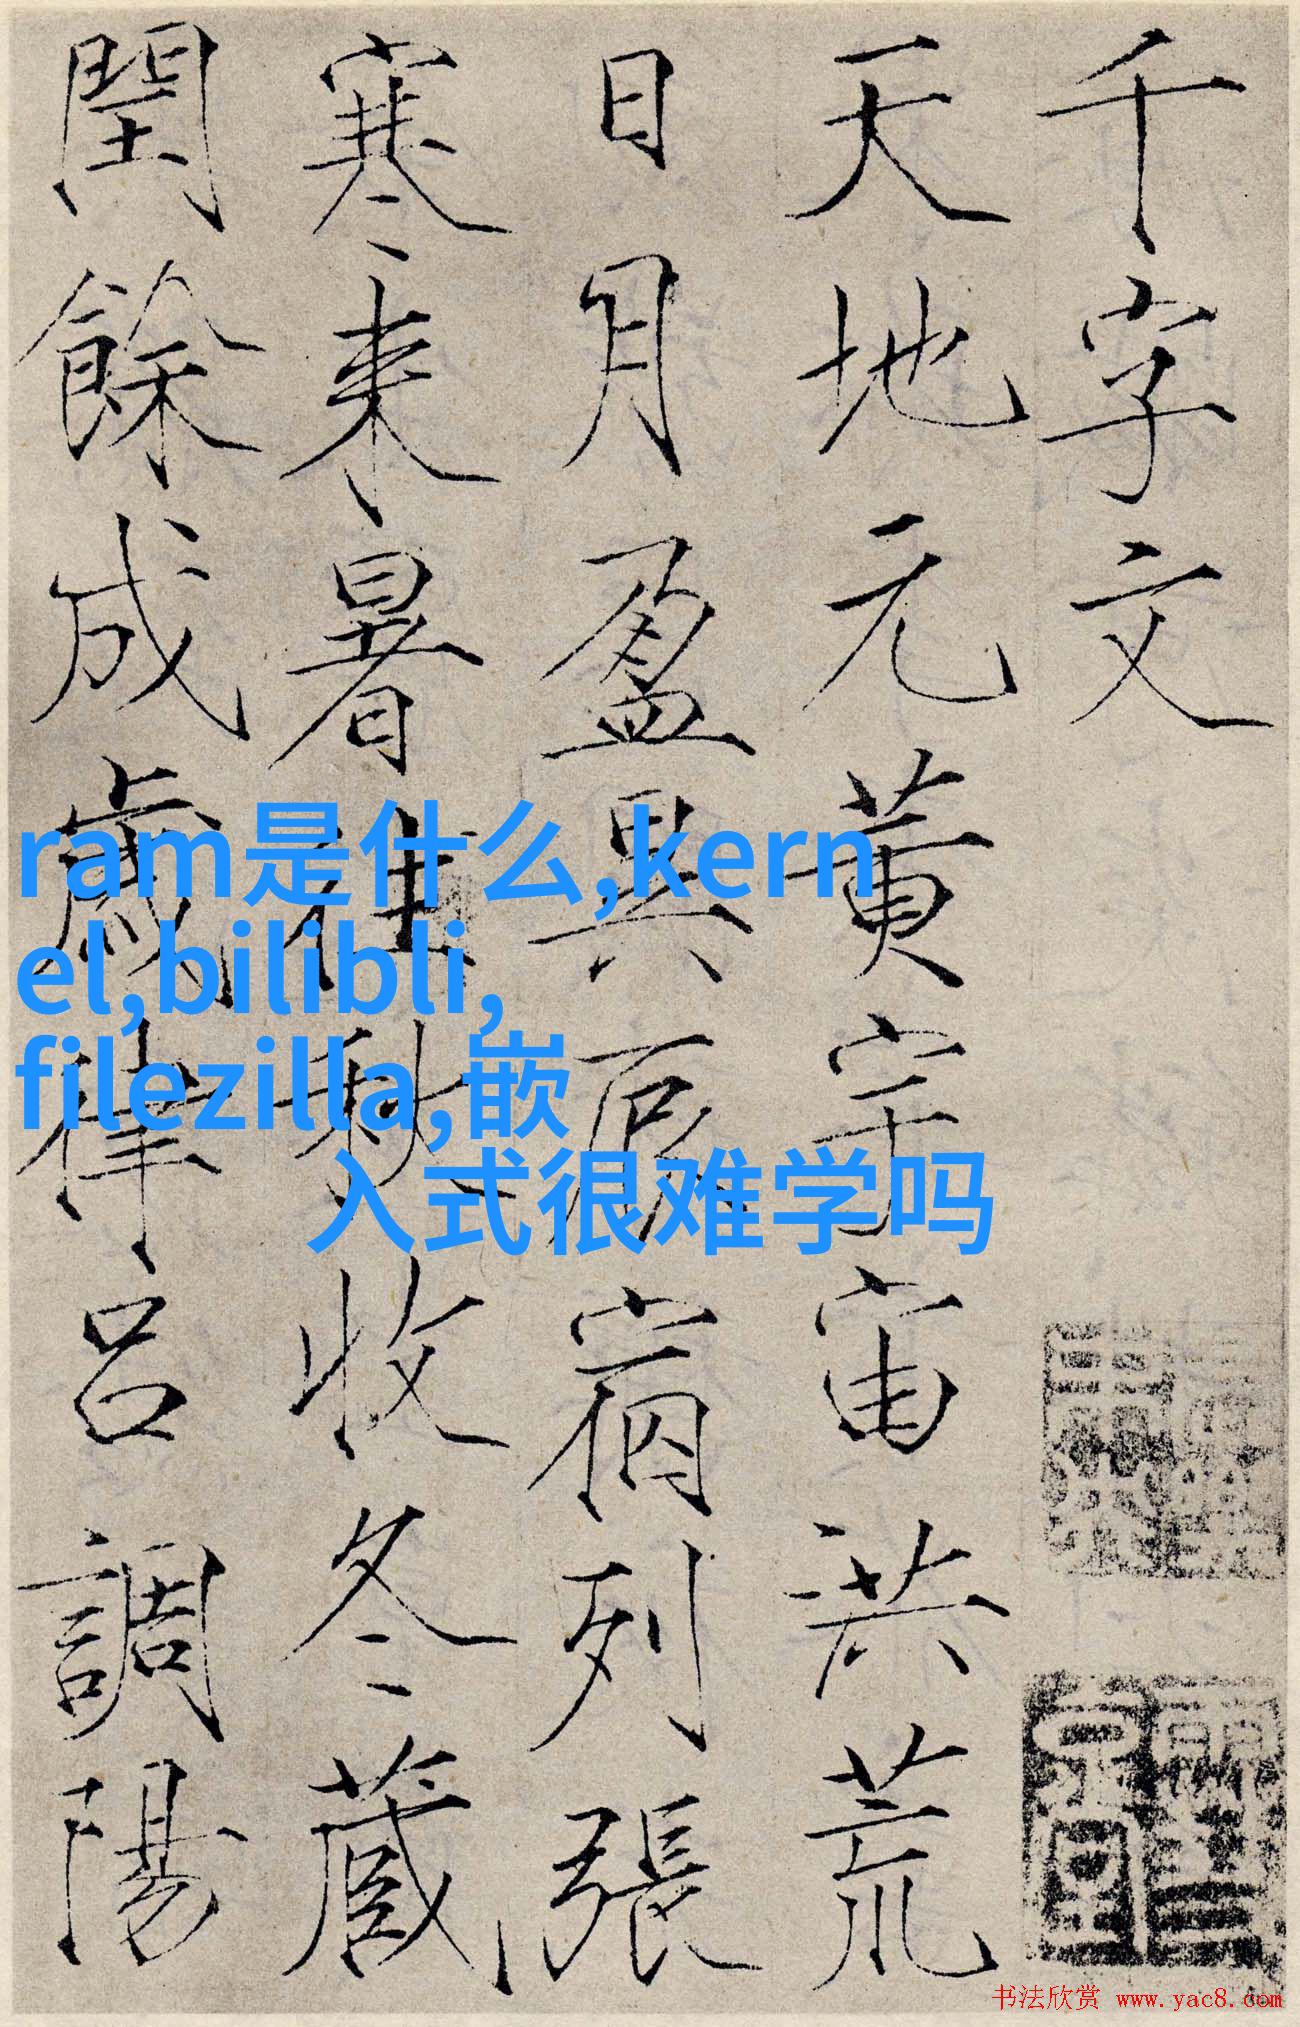 千字文
天地元黃宇宙洪荒
日月盈昃辰宿列張
寒来暑往秋收冬蔵
閏餘成歲律呂調陽
ram是什么,kern
el,bilibli,
filezilla,嵌
入式很难学吗
书法欣赏 www.yac8.com